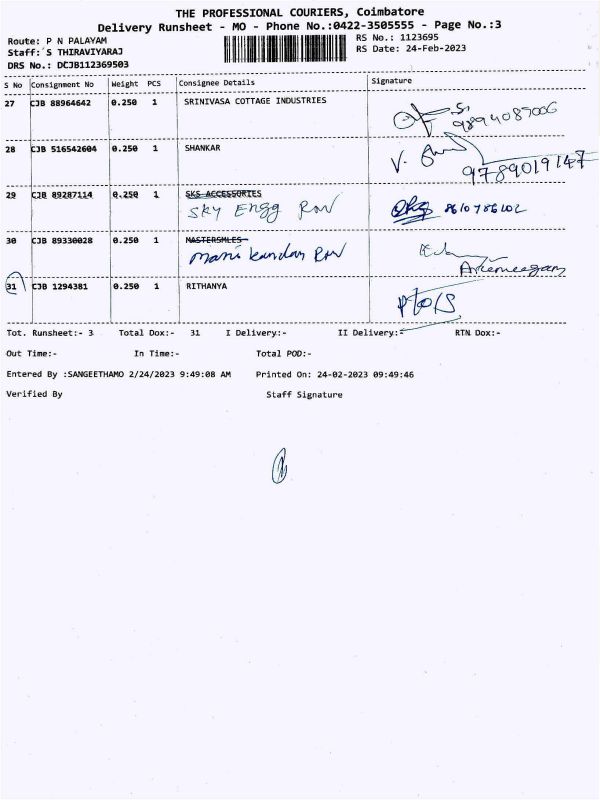 THE PROFESSIONAL COURIERS, Coimbatore
Delivery Runsheet - MO - Phone No.:0422-3505555 - Page No.:3
Route: P N PALAYAM
RS No.: 1123695
Staff: S THIRAVIYARAJ
RS Date: 24-Feb-2023
DRS No.: DCJB112369503
S No Consignment No Weight PCS Consignee Details Signature
27 CJB 88964642 0.250 1 SRINIVASA COTTAGE INDUSTRIES
9894087006
28 CJB 516542604 0.250 1 SHANKAR V.
9789019147
29 CJB 89287114 0.250 1 SKS ACCESSORIES
Sky Engg 8610786102
30 CJB 89330028 0.250 1 MASTERSMLES
manikandan
31 CJB 1294381 0.250 1 RITHANYA
Tot. Runsheet:- 3 Total Dox:- 31 I Delivery:- II Delivery:- RTN Dox:-
Out Time:- In Time:- Total POD:-
Entered By :SANGEETHAMO 2/24/2023 9:49:08 AM Printed On: 24-02-2023 09:49:46
Verified By Staff Signature